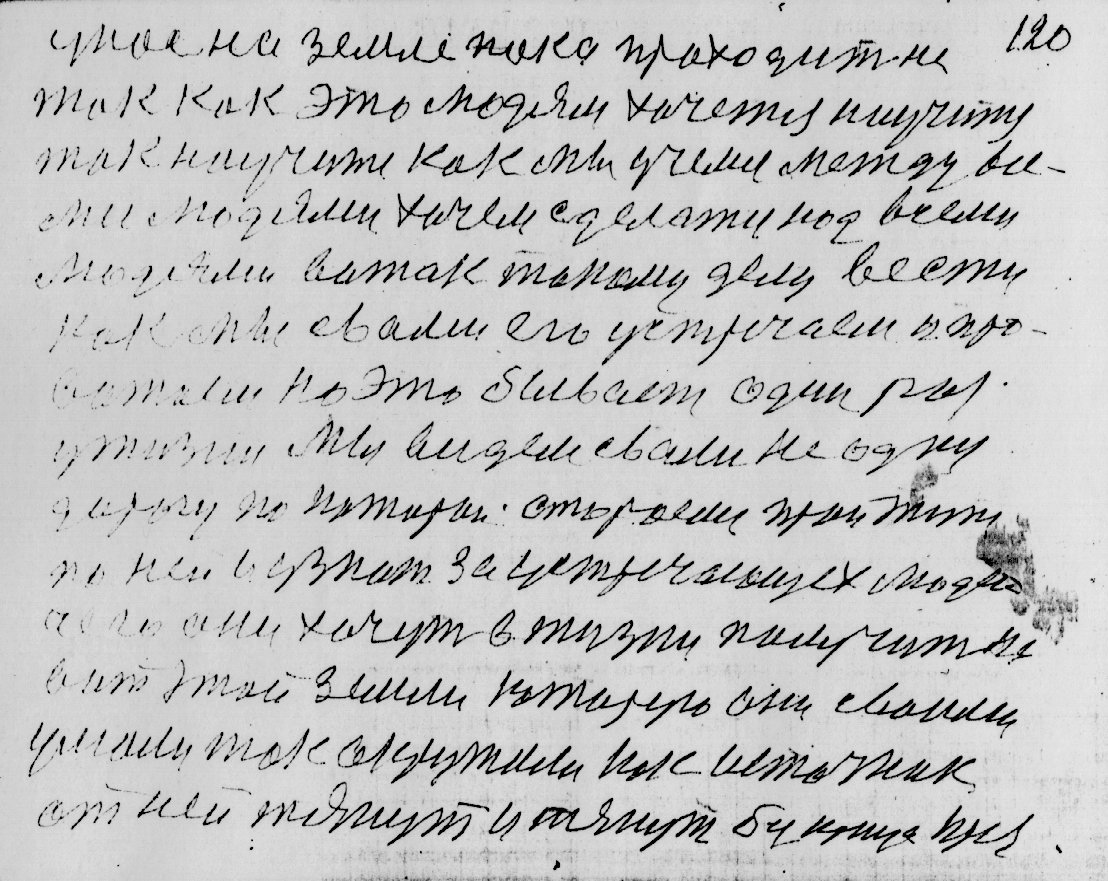 120
урое на земле пока проходит не
так как это людям хочется научится
так научити как мы учем между все-
ми людями хочем сделати над всеми
людями вотак такому делу вести
как мы свами его устречаем и про-
ботаем но это бывает один раз
ужизни мы видем свами не одну
дорогу по которой стораем проити
по ней и узнат за устречающех людей
чего они хочут в жизни получит на
вит этой земли которую они своими
умами так окружили как источник
от ней тянут и тянут бу конца края.